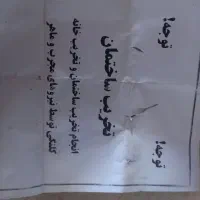 توجه!
توجه!
تخریب ساختمان
انجام تخریب ساختمان و تخریب خانه
کلنگی توسط نیروهای مجرب و ماهر